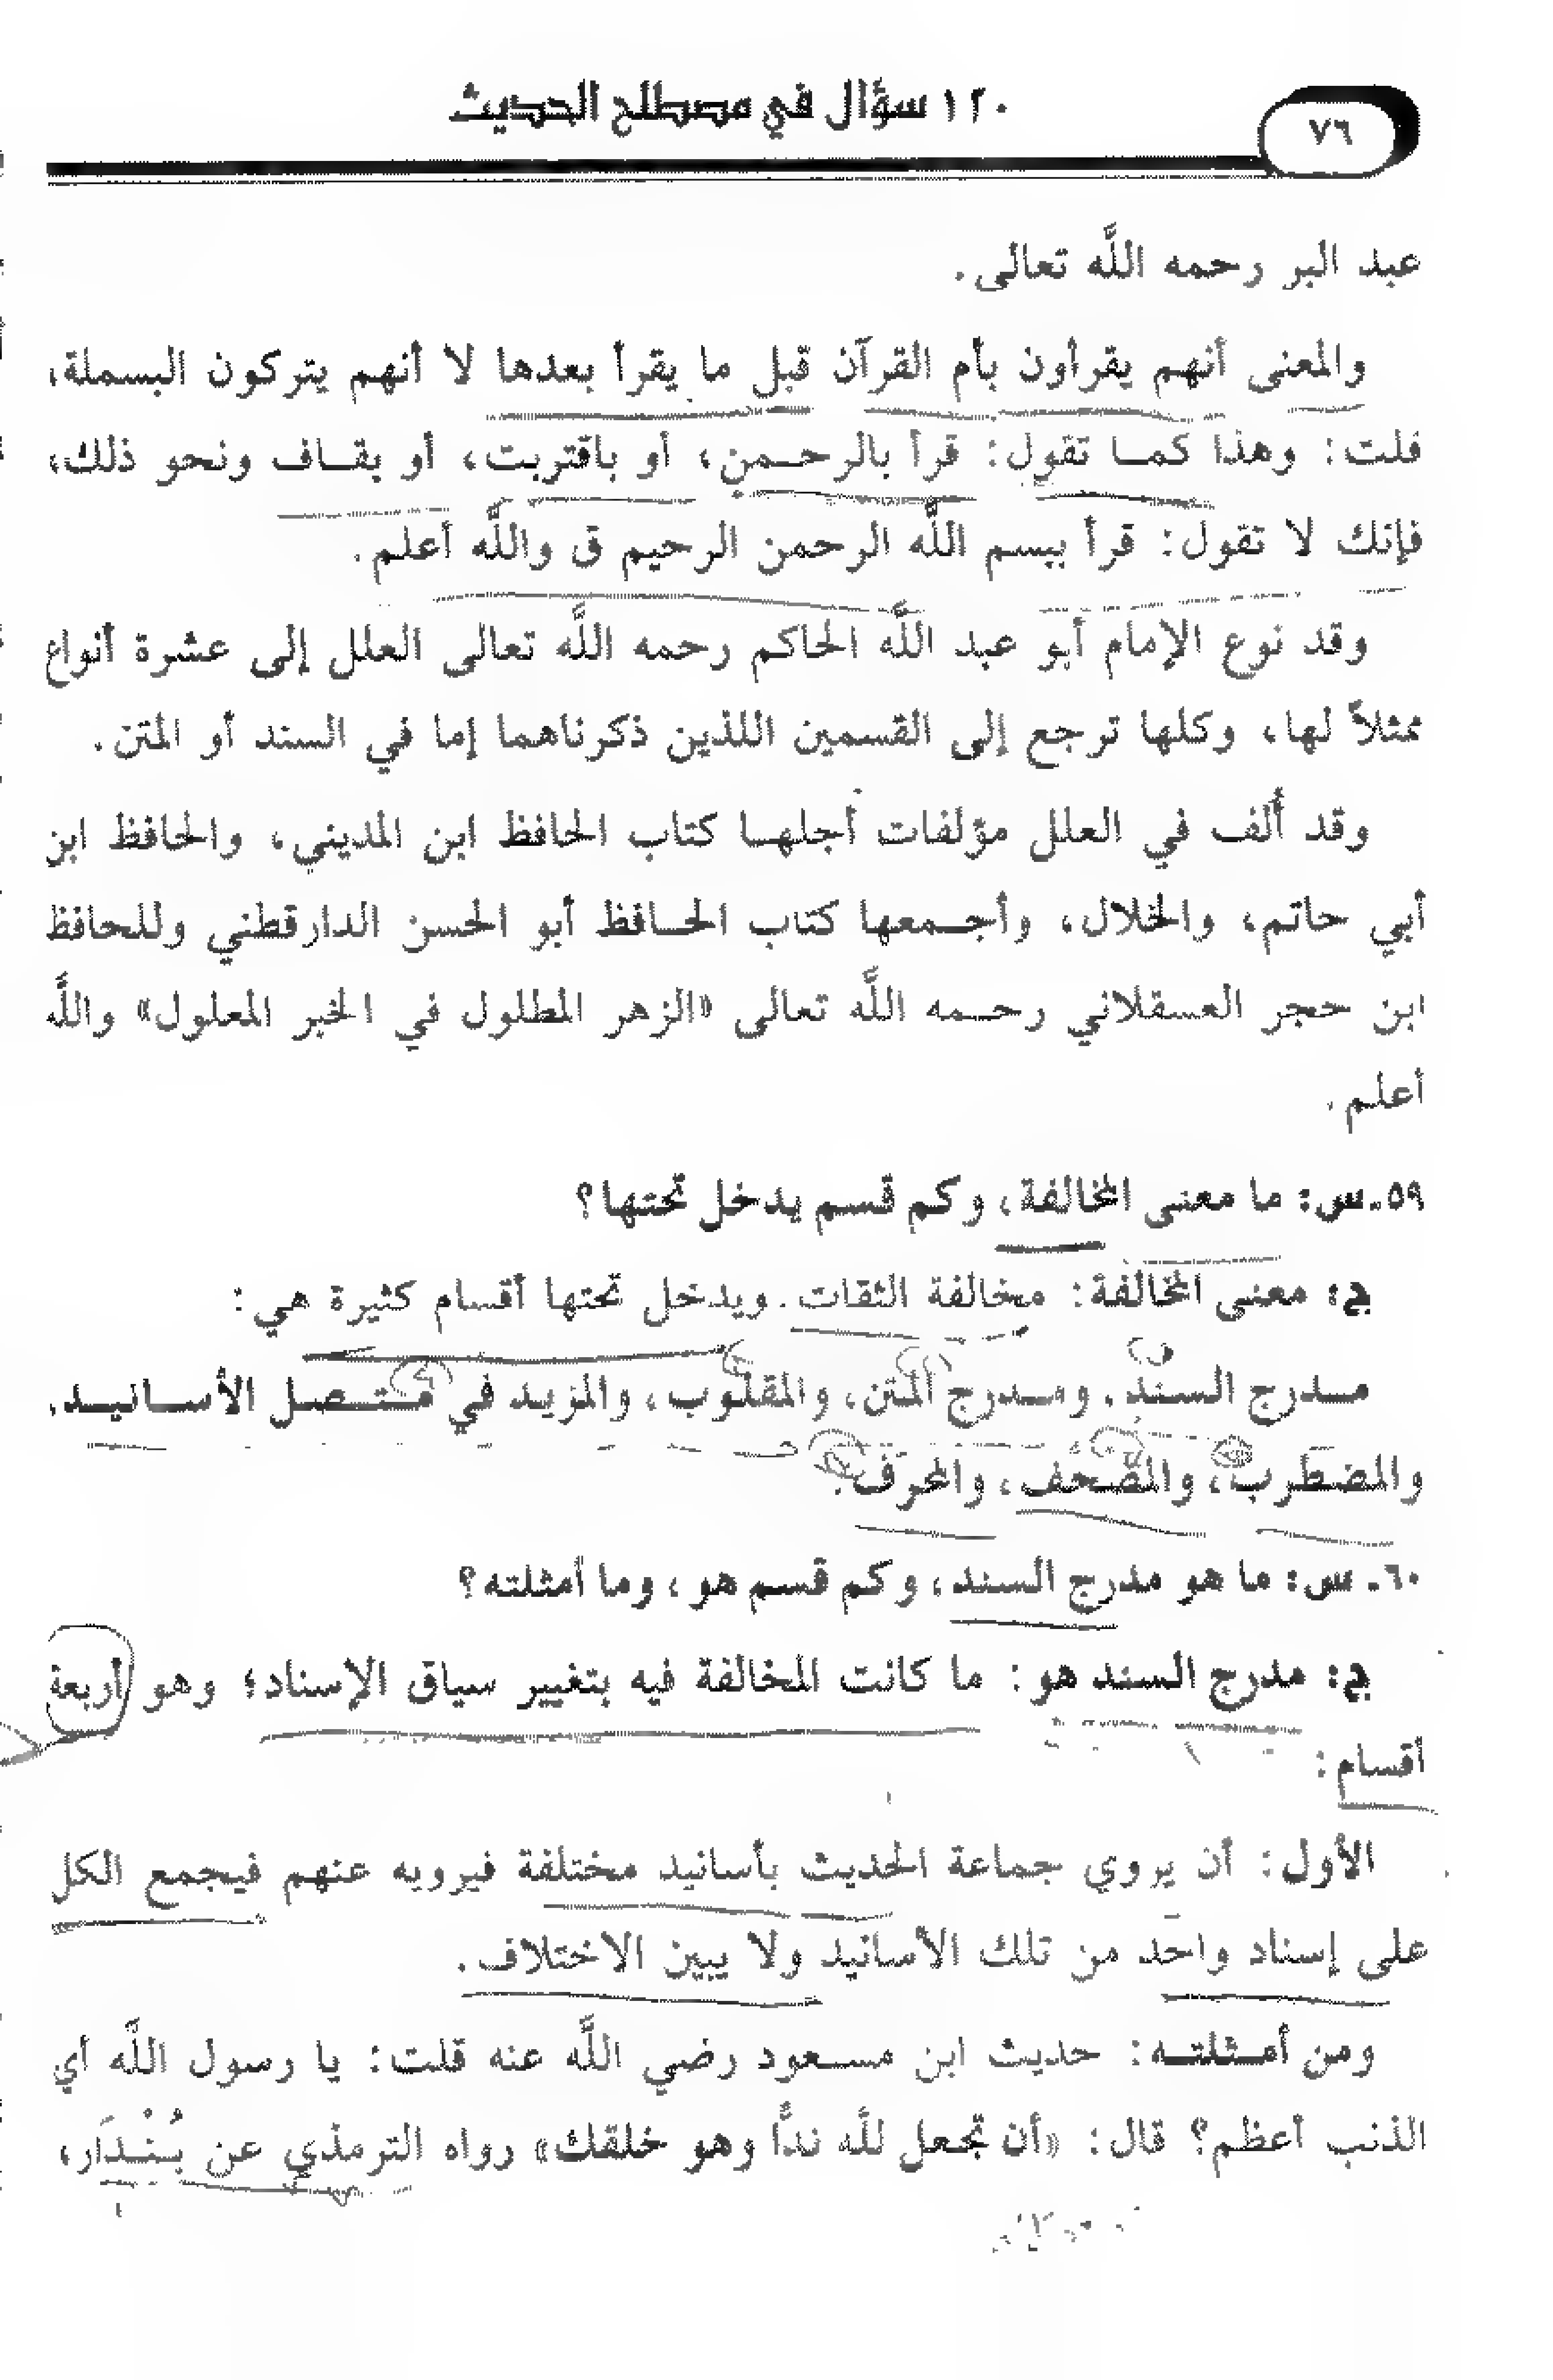 ١٢٠ سؤال في مصطلح الحديث
٧٦
عبد البر رحمه اللَّه تعالى.
والمعنى أنهم يقرأون بأم القرآن قبل ما يقرأ بعدها لا أنهم يتركون البسملة،
قلت: وهذا كما تقول: قرأ بالرحمن، أو باقتربت، أو بقاف ونحو ذلك،
فإنك لا تقول: قرأ ببسم اللَّه الرحمن الرحيم ق واللَّه أعلم.
وقد نوع الإمام أبو عبد اللَّه الحاكم رحمه اللَّه تعالى العلل إلى عشرة أنواع
ممثلاً لها، وكلها ترجع إلى القسمين اللذين ذكرناهما إما في السند أو المتن.
وقد أُلف في العلل مؤلفات أجلها كتاب الحافظ ابن المديني، والحافظ ابن
أبي حاتم، والخلال، وأجمعها كتاب الحافظ أبو الحسن الدارقطني وللحافظ
ابن حجر العسقلاني رحمه اللَّه تعالى «الزهر المطلول في الخبر المعلول» واللَّه
أعلم.
٥٩ـ س: ما معنى المخالفة، وكم قسم يدخل تحتها؟
ج: معنى المخالفة: مخالفة الثقات. ويدخل تحتها أقسام كثيرة هي:
مدرج السند. ومدرج المتن، والمقلوب، والمزيد في متصل الأسانيد.
والمضطرب، والمصحف، والمحرف.
٦٠ـ س: ما هو مدرج السند، وكم قسم هو، وما أمثلته؟
ج: مدرج السند هو: ما كانت المخالفة فيه بتغيير سياق الإسناد؛ وهو أربعة
أقسام:
الأول: أن يروي جماعة الحديث بأسانيد مختلفة فيرويه عنهم فيجمع الكل
على إسناد واحد من تلك الأسانيد ولا يبين الاختلاف.
ومن أمثلته: حديث ابن مسعود رضي اللَّه عنه قلت: يا رسول اللَّه أي
الذنب أعظم؟ قال: «أن تجعل للَّه ندًّا وهو خلقك» رواه الترمذي عن بُنْدَار،